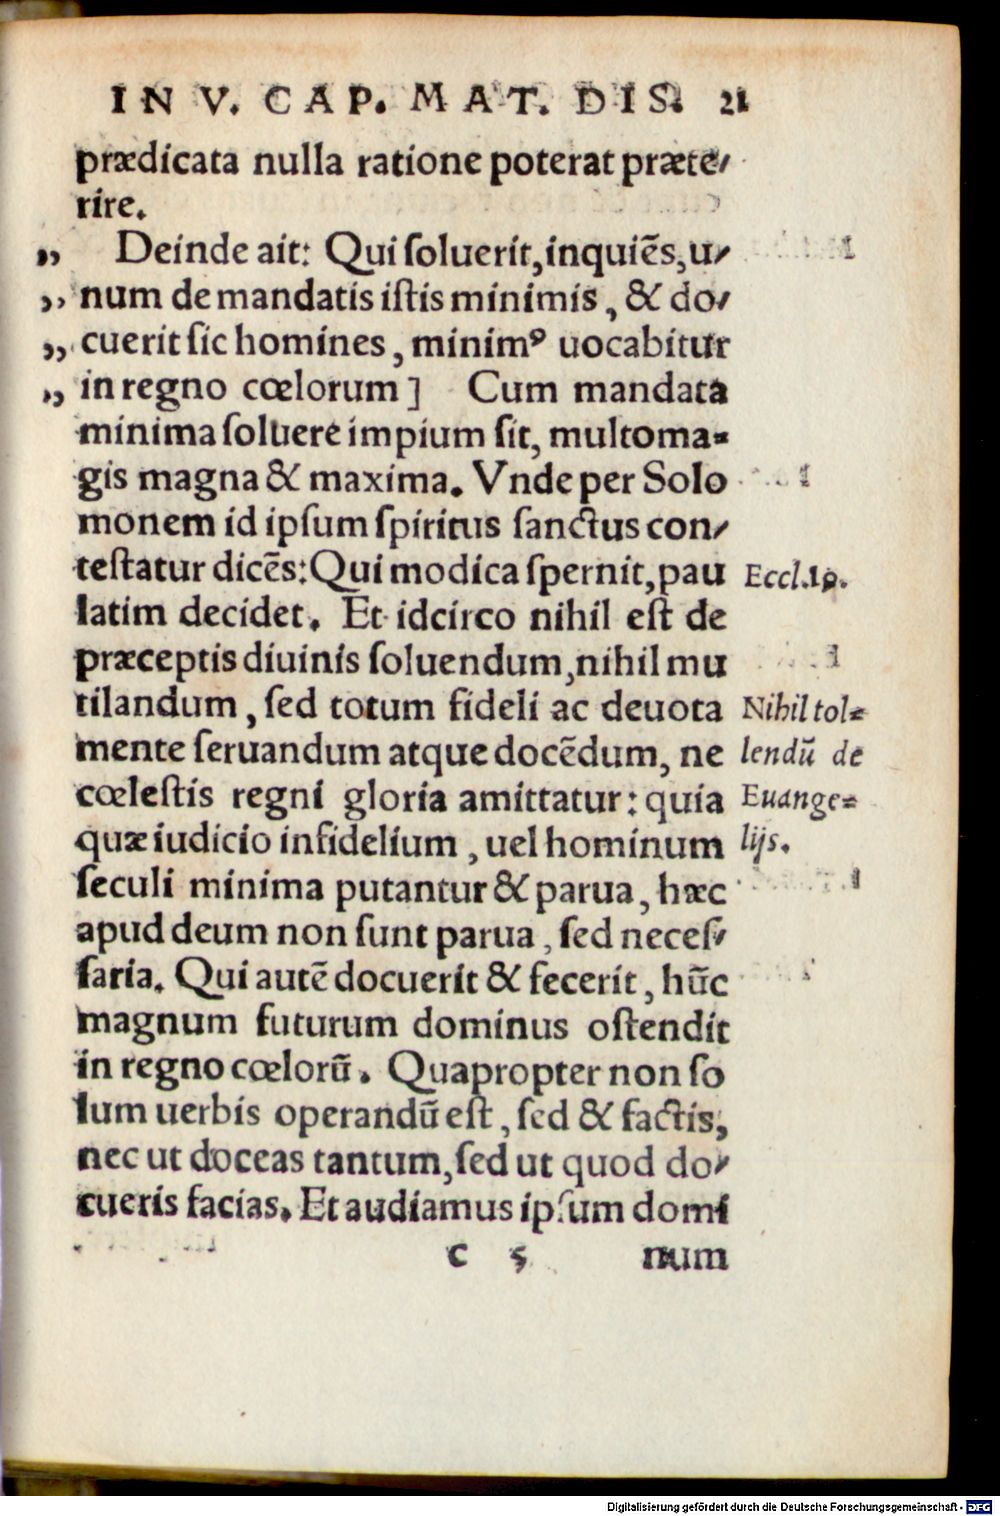 IN V. CAP. MAT. DIS. 21
prædicata nulla ratione poterat præte-
rire.
„ Deinde ait: Qui ſoluerit, inquiẽs, u-
„ num de mandatis iſtis minimis, & do-
„ cuerit ſic homines, minimꝰ uocabitur
„ in regno cœlorum] Cum mandata
minima ſoluere impium ſit, multo ma-
gis magna & maxima. Vnde per Solo
monem id ipſum ſpiritus ſanctus con-
teſtatur dicẽs: Qui modica ſpernit, pau
latim decidet. Et idcirco nihil eſt de
præceptis diuinis ſoluendum, nihil mu
tilandum, ſed totum fideli ac deuota
mente ſeruandum atque docẽdum, ne
cœleſtis regni gloria amittatur: quia
quæ iudicio infidelium, uel hominum
ſeculi minima putantur & parua, hæc
apud deum non ſunt parua, ſed neceſ-
ſaria. Qui autẽ docuerit & fecerit, hũc
magnum futurum dominus oſtendit
in regno cœlorũ. Quapropter non ſo
lum uerbis operandũ eſt, ſed & factis,
nec ut doceas tantum, ſed ut quod do-
cueris facias. Et audiamus ipſum domi
c 5 num
Eccl. 19.
Nihil tol-
lendũ de
Euange-
lijs.
Digitalisierung gefördert durch die Deutsche Forschungsgemeinschaft - DFG